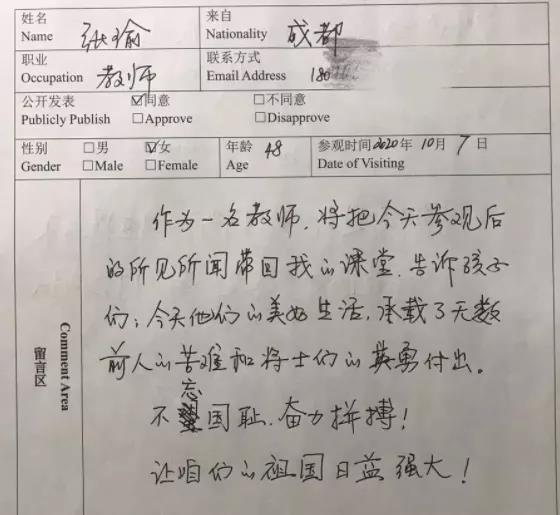 姓名 张瑜 来自 成都
Name Nationality
职业 教师 联系方式
Occupation Email Address 180
公开发表 ☑同意 □不同意
Publicly Publish □Approve □Disapprove
性别 □男 ☑女 年龄 48 参观时间2020年10月7日
Gender □Male □Female Age Date of Visiting
留言区 Comment Area
作为一名教师，将把今天参观后
的所见所闻带回我的课堂，告诉孩子
们：今天他们的美好生活，承载了无数
前人的苦难和将士们的英勇付出。
不忘国耻、奋力拼搏！
让咱们的祖国日益强大！